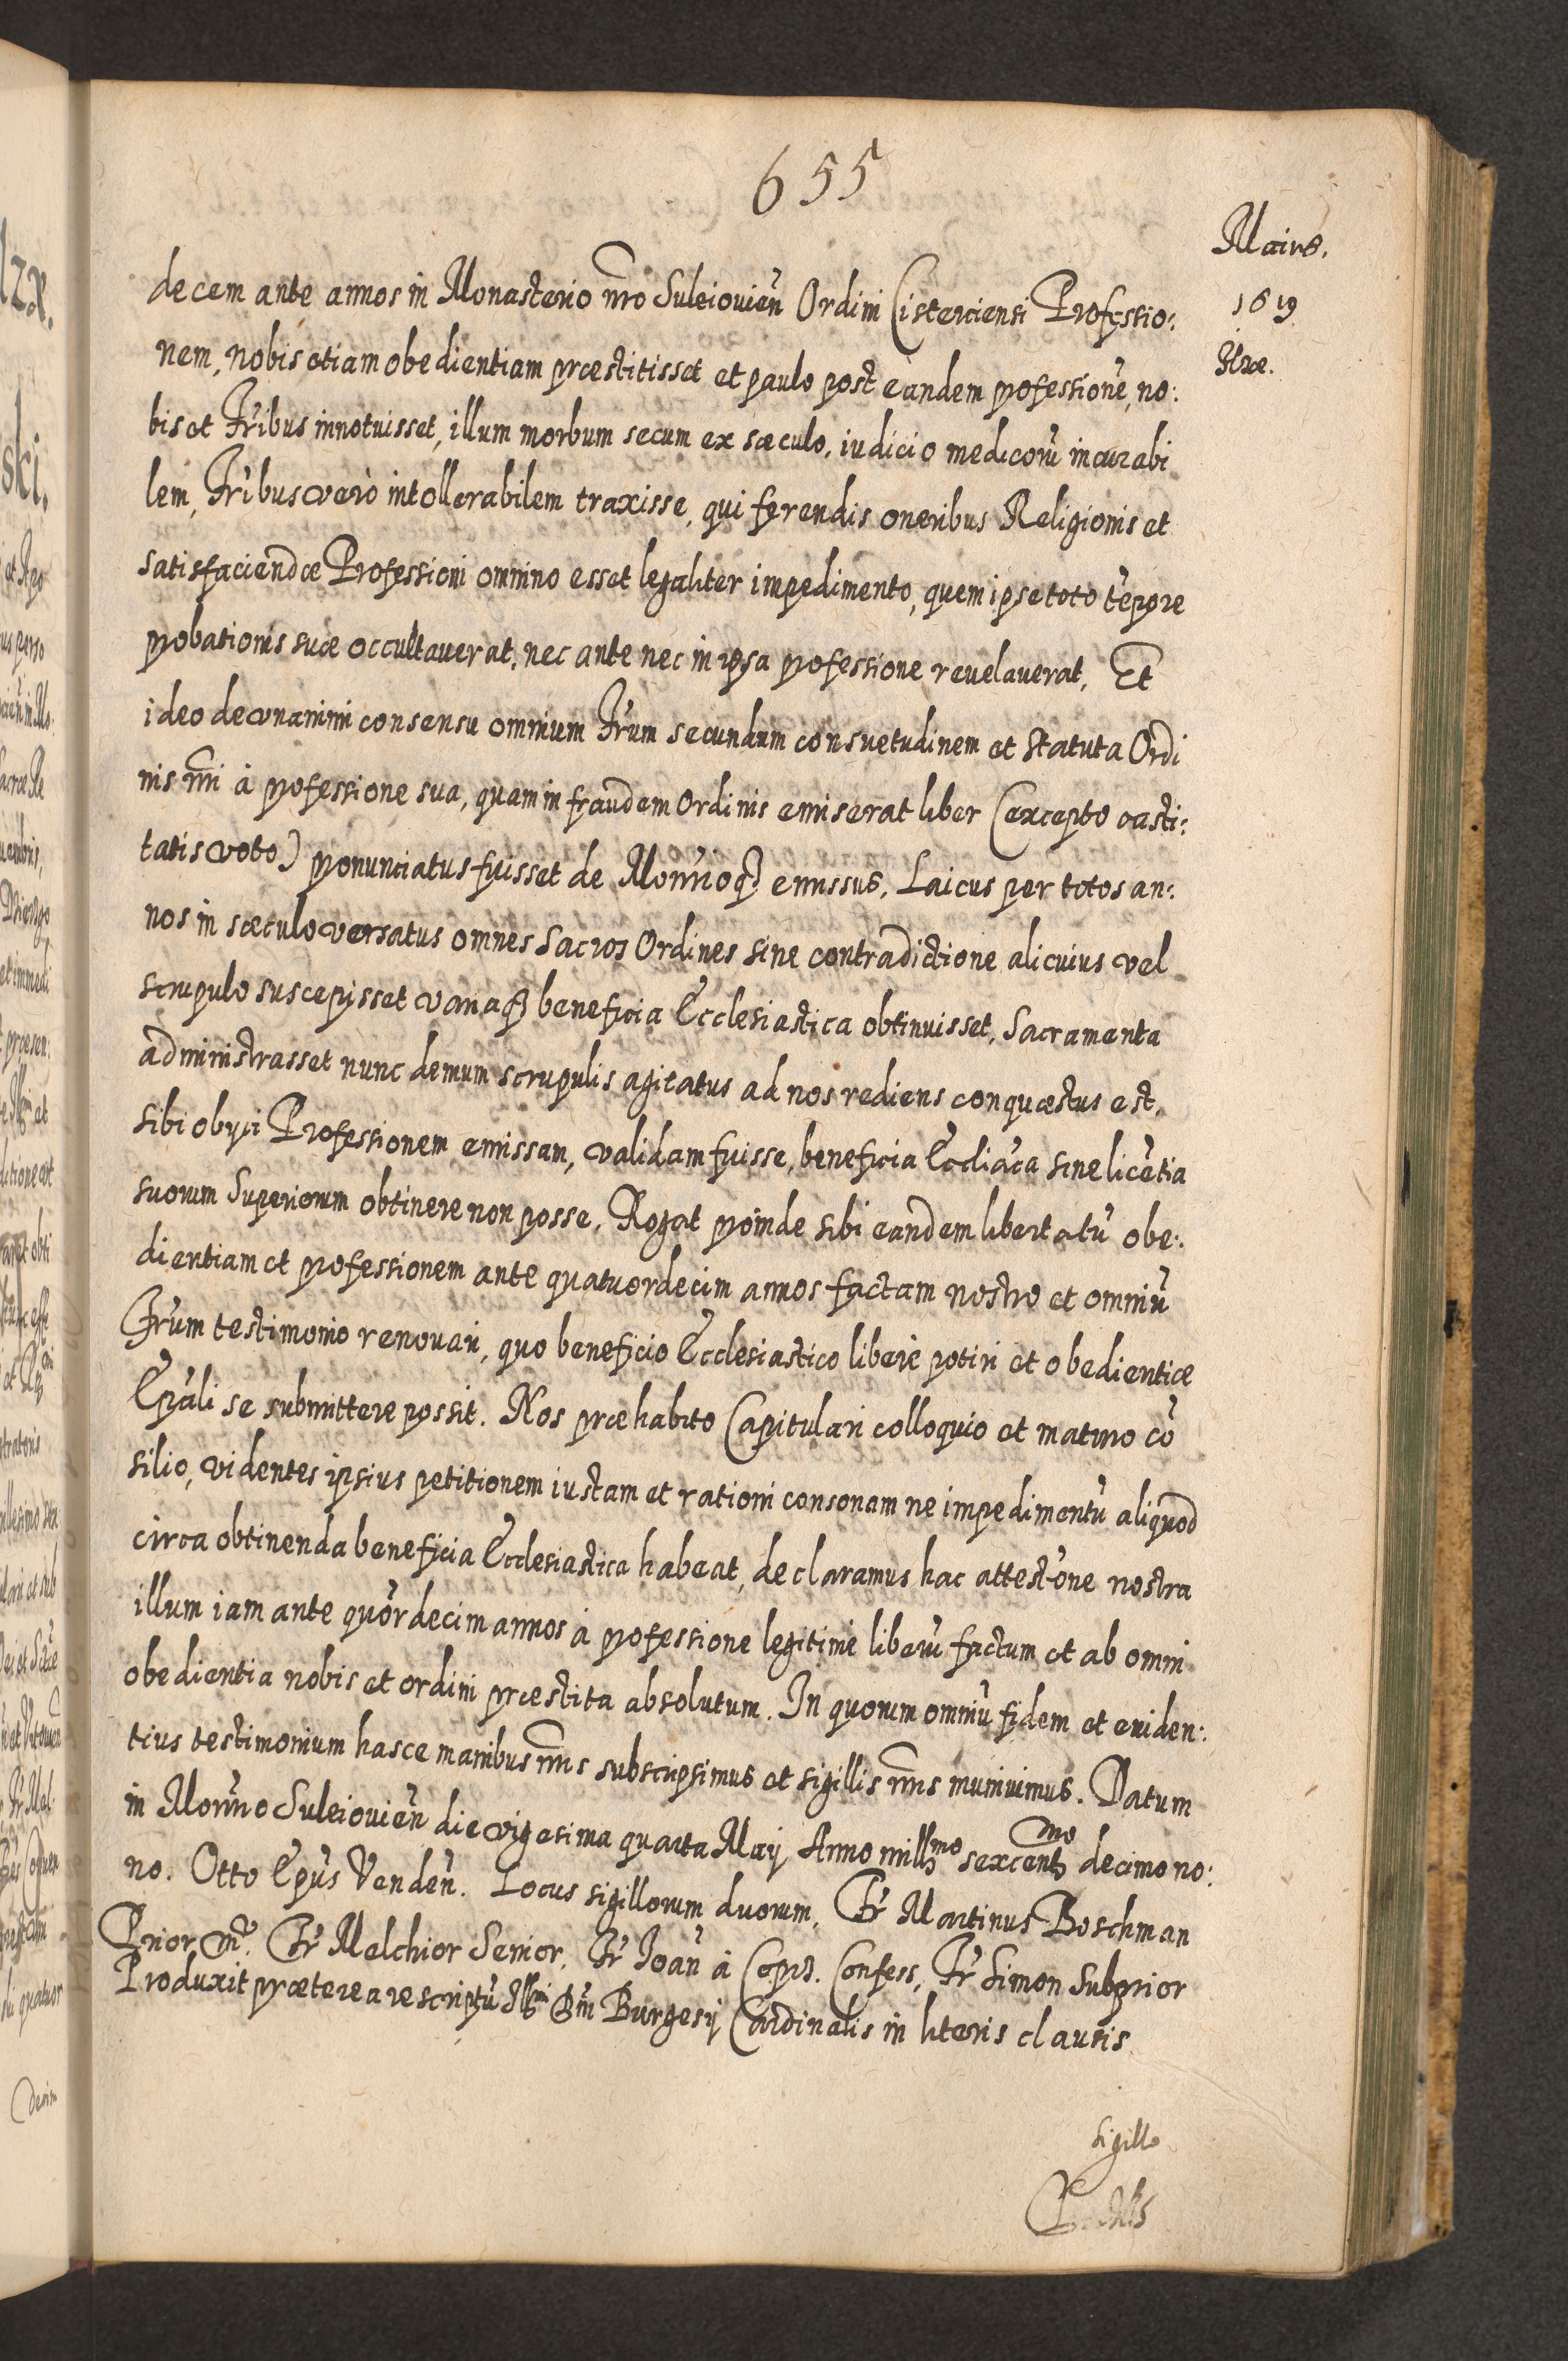 655
Maius.
1619
Ilzæ.
decem ante annos in Monasterio nr̃o Suleiovien̄ Ordini Cisterciensi Professio:
nem, nobis etiam obedientiam præstitisset et paulo post eandem professionē, no:
bis et Fr̄ibus innotuisset, illum morbum secum ex sæculo, iudicio medicorū incurabi
lem, Fr̄ibus verò intollerabilem traxisse, qui ferendis oneribus Religionis et
satisfaciendæ Professioni omnino esset legaliter impedimento, quem ipse toto tēpore
probationis suæ occultauerat, nec ante nec in ipsa professione reuelauerat, Et
ideo de vnanimi consensu omnium Fr̄um secundum consuetudinem et statuta Ordi
nis nr̃i à professione sua, quam in fraudem Ordinis emiserat liber (excepto casti:
tatis voto) pronunciatus fuisset de Monr̄ioq3 emissus, Laicus per totos an:
nos in sæculo versatus omnes Sacros Ordines sine contradictione alicuius vel
scrupulo suscepisset variaq3 beneficia Ecclesiastica obtinuisset, Sacramenta
administrasset nunc demum scrupulis agitatus ad nos rediens conquæstus est,
sibi obijci Professionem emissam, validam fuisse, beneficia Eccliāca sine licētia
suorum Superiorum obtinere non posse, Rogat proinde sibi eandem libertatū obe:
dientiam et professionem ante quatuordecim annos factam nostro et omniū
Fr̄um testimonio renouari, quo beneficio Ecclesiastico liberè potiri et obedientiæ
Ep̄ali se submittere possit. Nos præhabito Capitulari colloquio et maturo cō
silio, videntes ipsius petitionem iustam et rationi consonam ne impedimentū aliquod
circa obtinenda beneficia Ecclesiastica habeat, declaramus hac attestōne nostra
illum iam ante quōrdecim annos à professione legitimè liberū factum et ab omni
obedientia nobis et ordini præstita absolutum. In quorum omniū fidem et euiden:
tius testimonium hasce manibus nr̃is subscripsimus et sigillis nr̃is muniuimus. Datum
in Monr̄io Suleiovien̄ die vigesima quarta Maij Anno mill3mo sexcent3mo decimo no:
no. Otto Ep̄us Venden̄. Locus sigillorum duorum, Fr̄ Martinus Boschman
Prior m̄. Fr̄ Melchior Senior, Fr̄ Ioan̄ à Coprz. Confess, Fr̄ Simon Subprior
Produxit præterea rescriptū Ill3mi Dn̄i Burgesij Cardinalis in literis clausis
sigillo